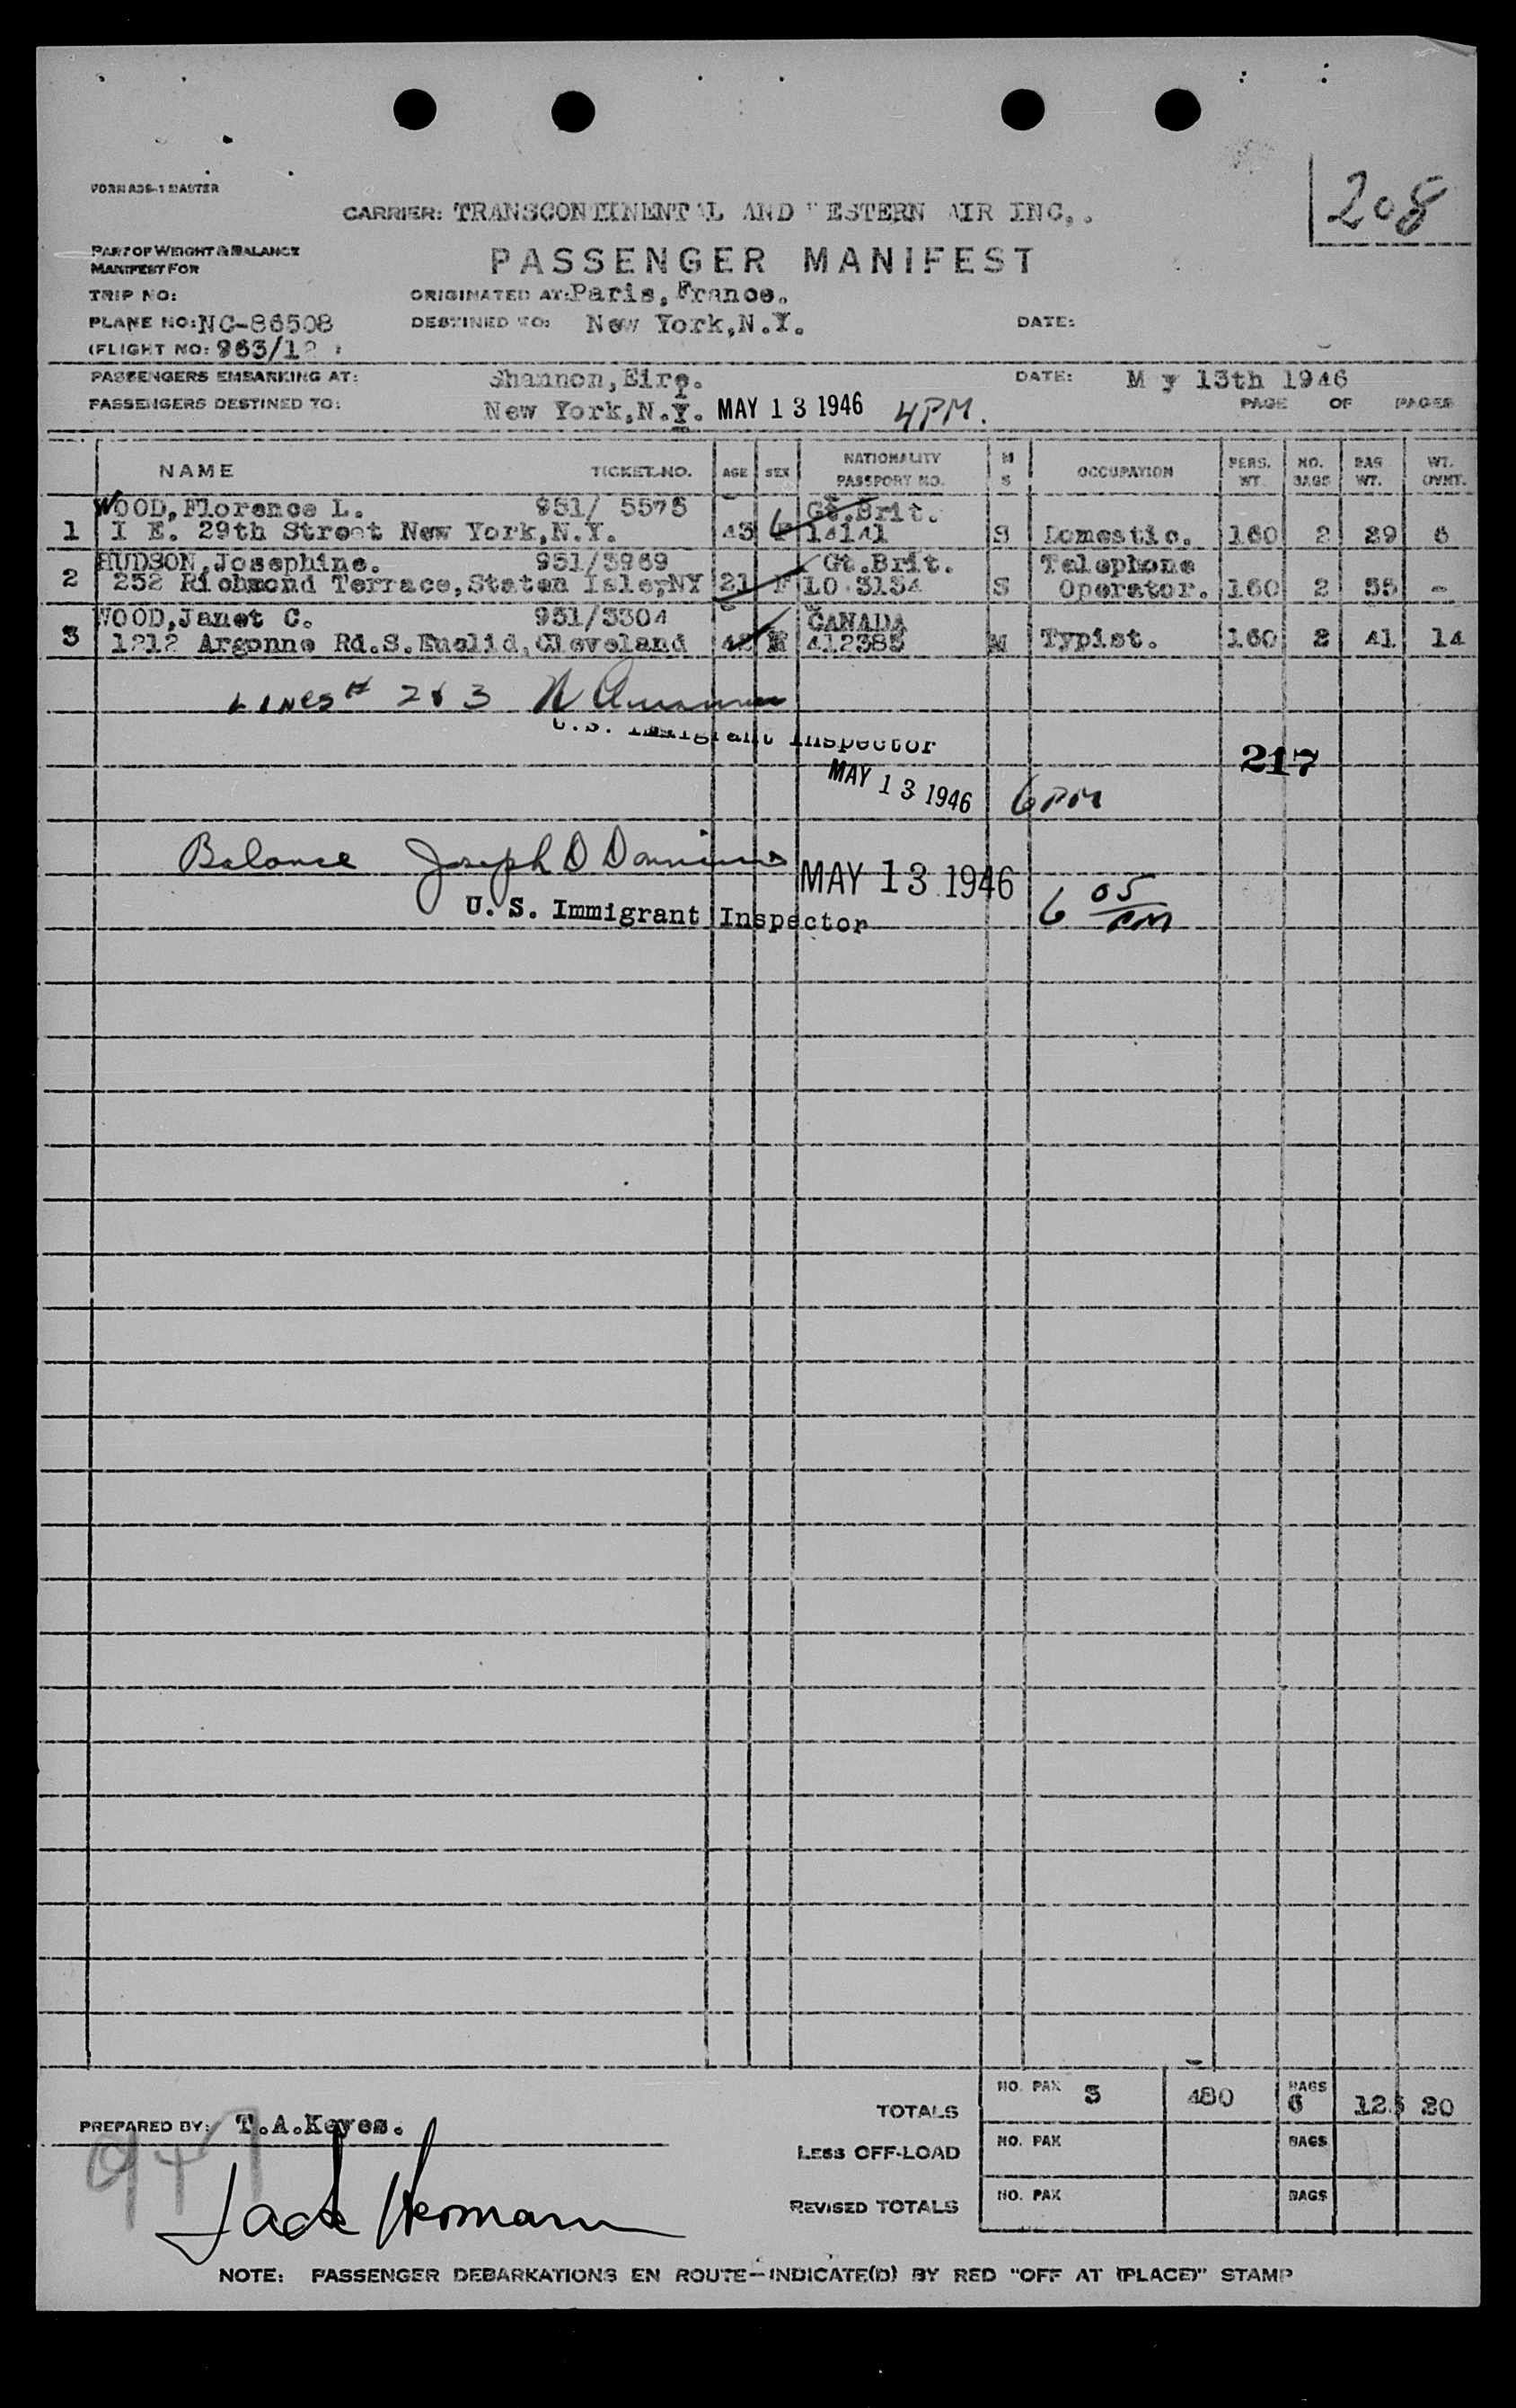 FORM ADS-1 MASTER
208
CARRIER: TRANSCONTINENTAL AND WESTERN AIR INC,.
PART OF WEIGHT & BALANCE
MANIFEST FOR
PASSENGER MANIFEST
TRIP NO:
ORIGINATED AT: Paris, France.
PLANE NO: NC-86508
DESTINED TO: New York, N.Y.
DATE:
(FLIGHT NO: 963/12
PASSENGERS EMBARKING AT: Shannon, Eire.
DATE: M y 13th 1946
PASSENGERS DESTINED TO: New York, N.Y. MAY 13 1946 4PM.
PAGE OF PAGES
NAME TICKET NO. AGE SEX NATIONALITY PASSPORT NO. M S OCCUPATION PERS. WT. NO. BAGS BAG WT. WT. OVHT.
WOOD, Florence L. 951/ 5575 Gt.Brit.
1 I E. 29th Street New York, N.Y. 43 F 14141 S Domestic. 160 2 29 6
HUDSON, Josephine. 951/3969 Gt.Brit. Telephone
2 252 Richmond Terrace, Staten Isle, NY 21 F LO 3134 S Operator. 160 2 55 -
WOOD, Janet C. 951/3304 CANADA
3 1212 Argonne Rd. S. Euclid, Cleveland 42 F 412385 M Typist. 160 2 41 14
LINES # 2 & 3
U.S. Immigrant Inspector
217
MAY 13 1946 6PM
Balance Joseph D
MAY 13 1946 6 05 PM
U. S. Immigrant Inspector
TOTALS NO. PAX 3 480 BAGS 6 125 20
PREPARED BY: T.A.Keyes.
LESS OFF-LOAD NO. PAX BAGS
947
REVISED TOTALS NO. PAX BAGS
Jack Hermann
NOTE: PASSENGER DEBARKATIONS EN ROUTE—INDICATE(D) BY RED "OFF AT (PLACE)" STAMP